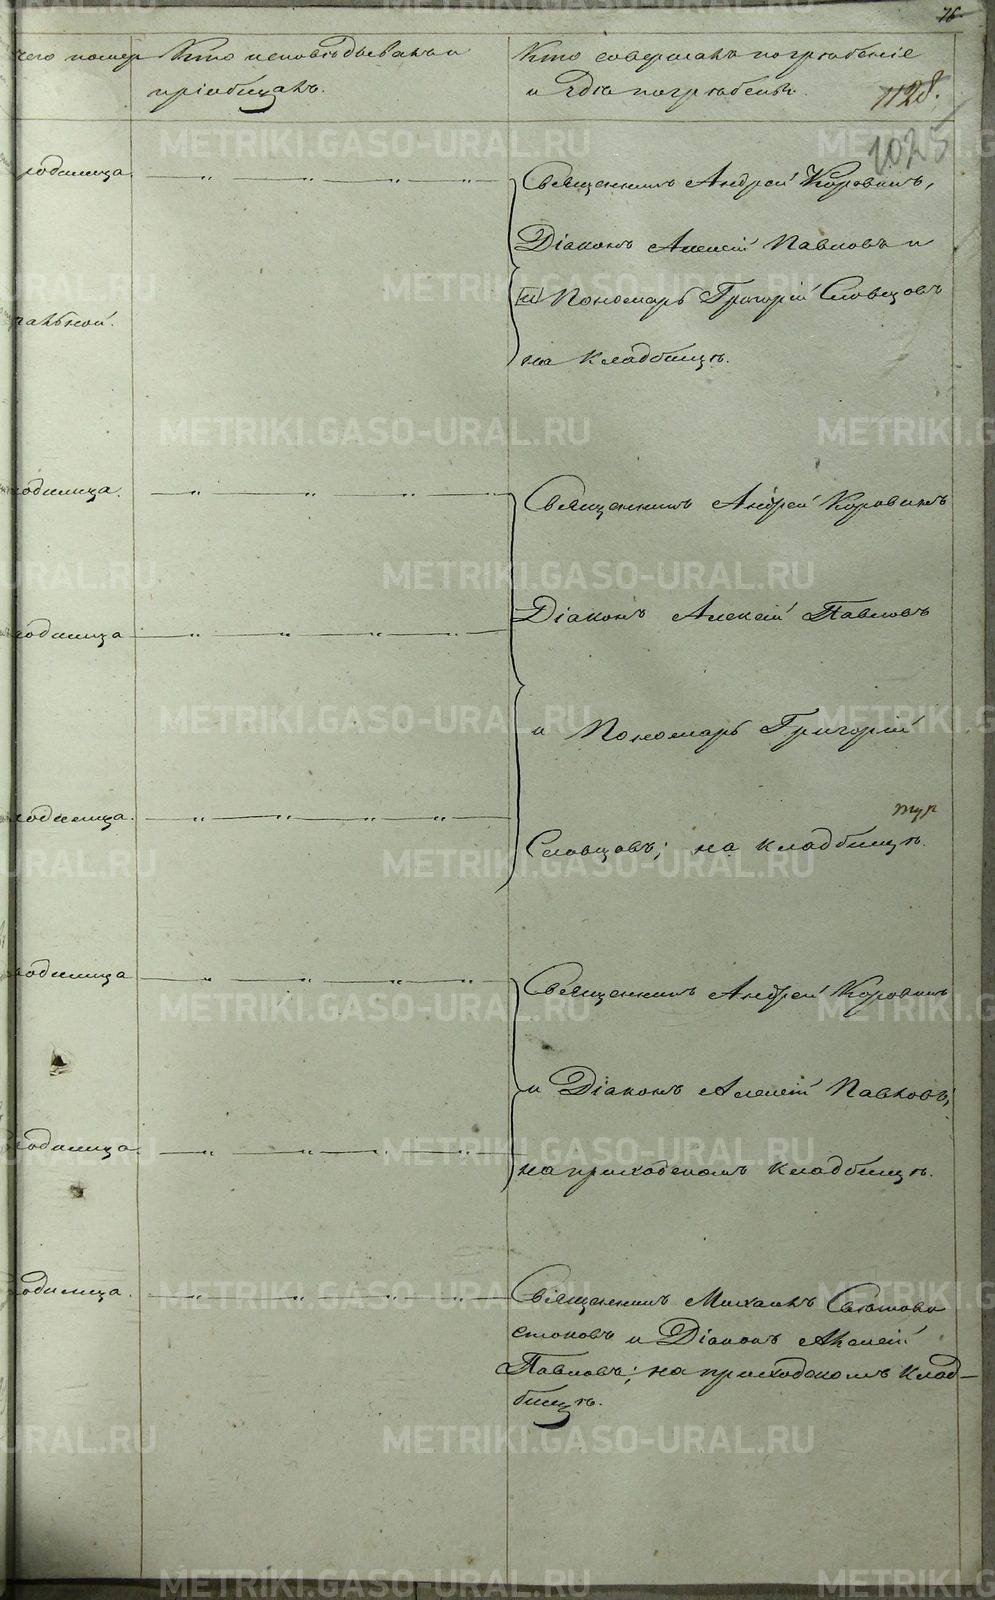 76.
чего помер
Кто исповѣдывалъ и
пріобщалъ.
Кто совершалъ погребеніе
и гдѣ погребены.
1128.
1025
родимца.
Священникъ Андрей Коровинъ,
Діаконъ Алексій Павловъ и
[и] Пономарь Григорій Словцовъ
на кладбищѣ.
родимца.
Священникъ Андрей Коровинъ
родимца
Діаконъ Алексій Павловъ
и Пономарь Григорій
родимца.
Словцовъ; на кладбищѣ.
родимца
Священникъ Андрей Коровинъ
и Діаконъ Алексій Павловъ;
родимца.
на приходскомъ кладбищѣ.
родимца.
Священникъ Михаилъ
и Діаконъ Алексій
Павловъ; на приходскомъ клад-
бищѣ.
METRIKI.GASO-URAL.RU